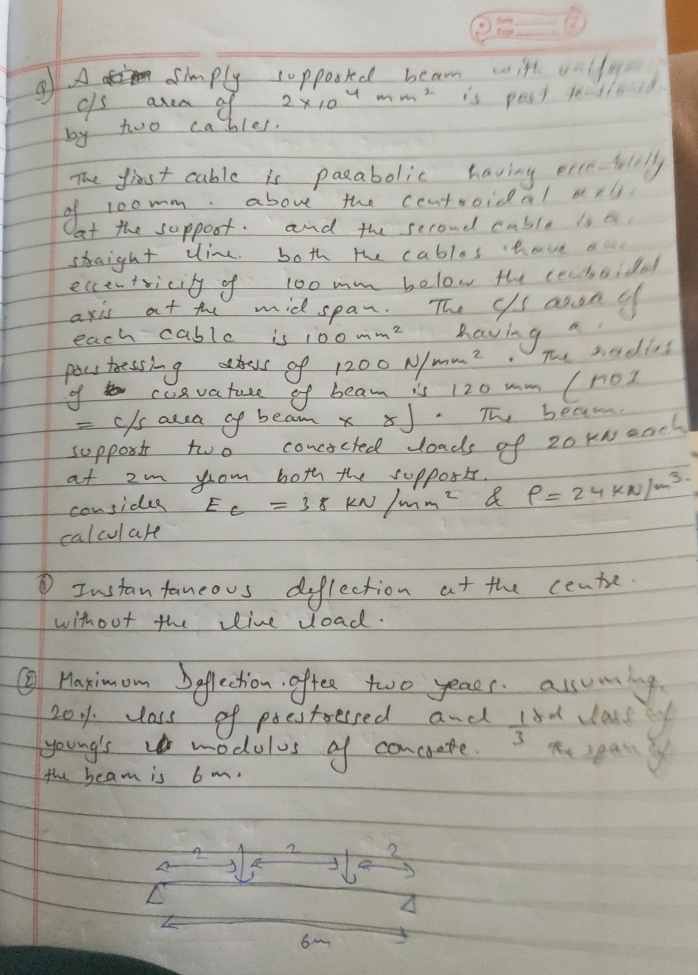 Q) A simply supported beam with uniform
c/s area of 2x10⁴ mm² is post tensioned
by two cables.
The first cable is parabolic having eccentricity
of 100mm. above the centroidal axis.
at the support. and the second cable is a
straight line. both the cables have an
eccentricity of 100 mm below the centroidal
axis at the midspan. The c/s area of
each cable is 100mm² having a
prestressing stress of 1200 N/mm². The radius
of curvature of beam is 120 mm (MOI
= c/s area of beam x r). The beam
supports two loads of 20 KN each
at 2m from both the supports.
consider Ec = 38 KN/mm² & ρ = 24 KN/m³.
calculate
① Instantaneous deflection at the centre.
without the live load.
② Maximum Deflection after two years. assuming
20% loss of prestressed and 1/3 rd loss of
young's modulus of concrete. The span of
the beam is 6m.
2 2 2
6m